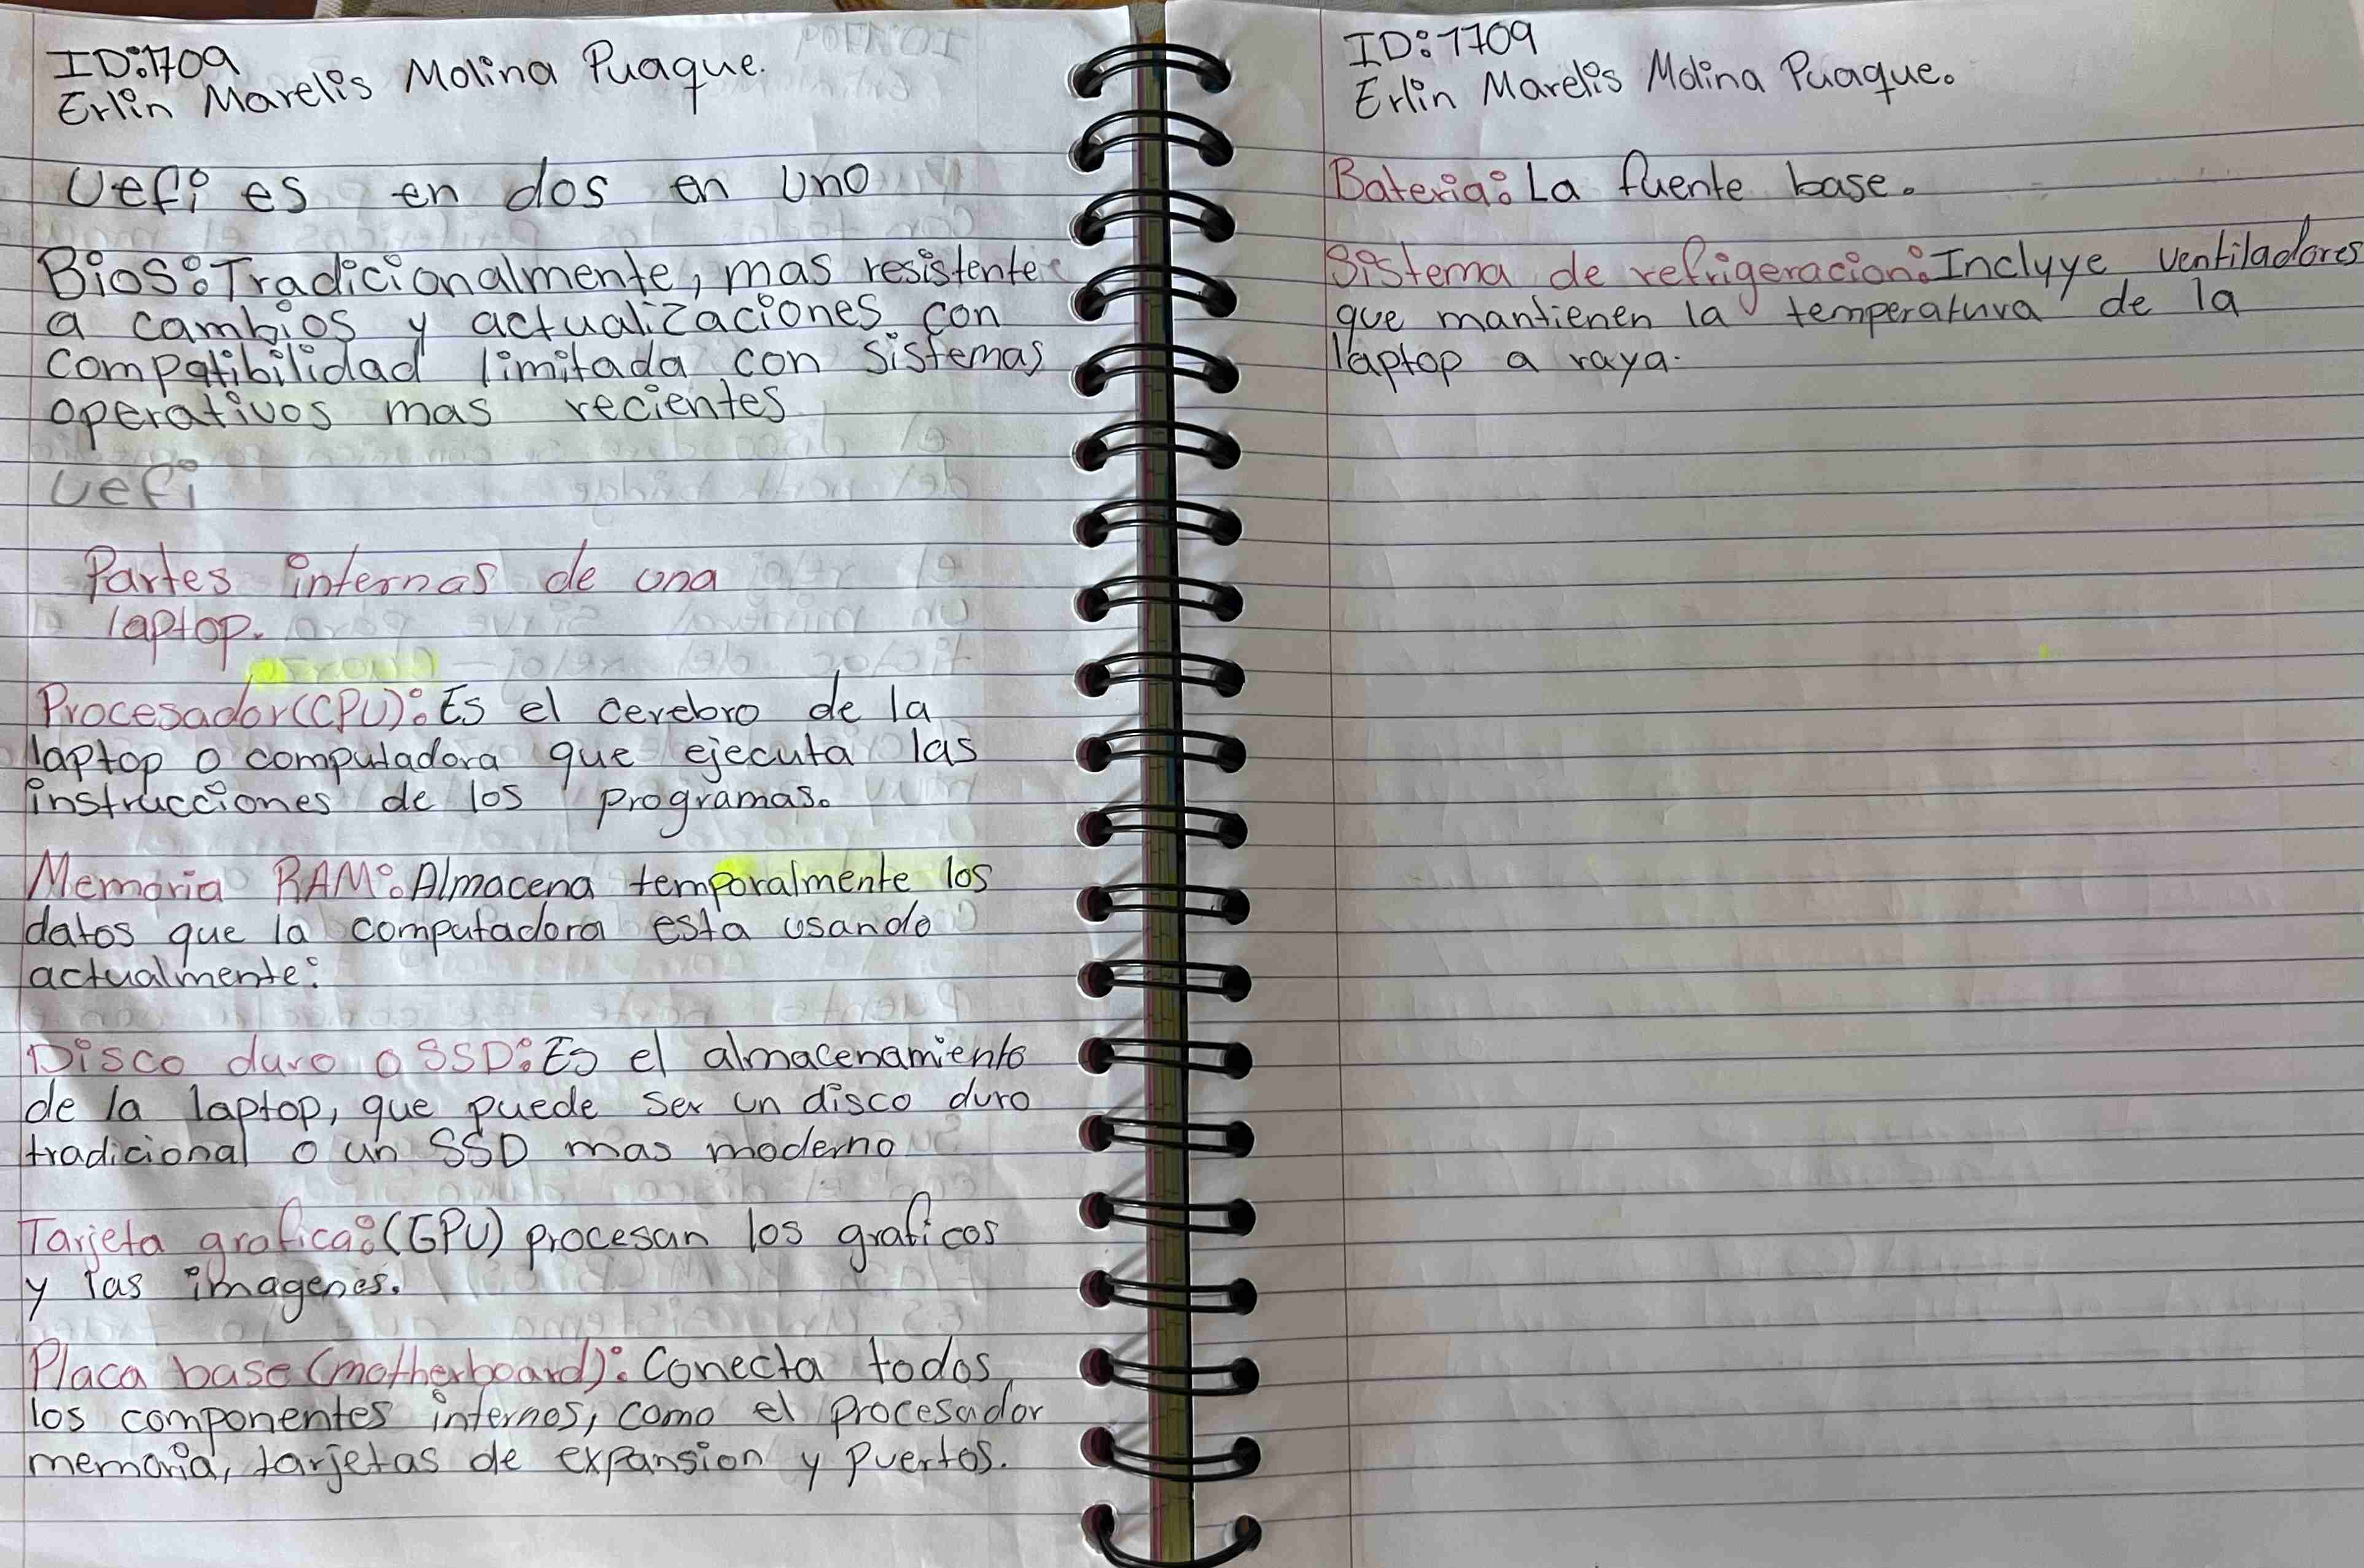 ID:1709
Erlin Marelis Molina Puaque.
Uefi es en dos en uno
Bios: Tradicionalmente, mas resistente
a cambios y actualizaciones con
compatibilidad limitada con sistemas
operativos mas recientes
Uefi
Partes internas de una
laptop.
Procesador(CPU): Es el cerebro de la
laptop o computadora que ejecuta las
instrucciones de los programas.
Memoria RAM: Almacena temporalmente los
datos que la computadora esta usando
actualmente:
Disco duro o SSD: Es el almacenamiento
de la laptop, que puede ser un disco duro
tradicional o un SSD mas moderno
Tarjeta grafica: (GPU) procesan los graficos
y las imagenes.
Placa base (motherboard): Conecta todos
los componentes internos, como el procesador
memoria, tarjetas de expansion y puertos.
ID: 1709
Erlin Marelis Molina Puaque.
Bateria: La fuente base.
Sistema de refrigeracion: Incluye ventiladores
que mantienen la temperatura de la
laptop a raya.